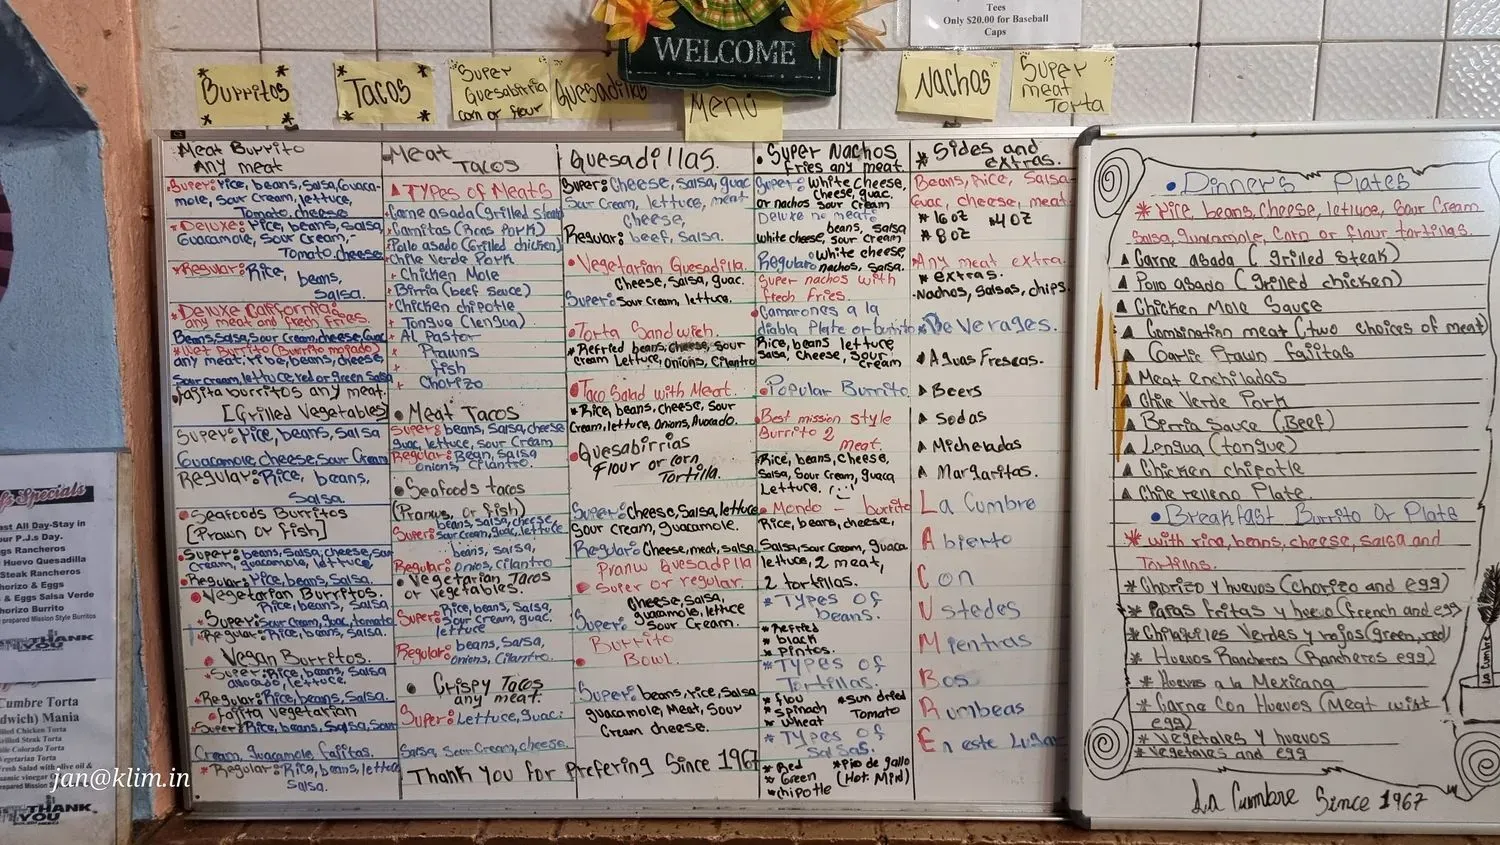 Tees
Only $20.00 for Baseball
Caps
WELCOME
Burritos
Tacos
Super
Quesabirria
corn or flour
Quesadillas
Menu
Nachos
Super
meat
Torta
Meat Burrito
Any meat
Super: rice, beans, salsa, Guaca-
mole, sour cream, lettuce,
Tomato, cheese
Deluxe: rice, beans, salsa,
Guacamole, Sour Cream,-
Tomato, cheese
Regular: Rice, beans,
Salsa.
Deluxe California:
any meat and fresh fries.
Beans, Salsa, Sour cream, cheese, Guac
Wet Burrito (Burrito mojado)
any meat, rice, beans, cheese,
Sour cream, lettuce, red or green Salsa
Fajita burritos any meat.
[Grilled Vegetables]
Super: rice, beans, salsa
Guacamole, cheese, sour Cream
Regular: Rice, beans,
Salsa.
Seafoods Burritos
[Prawn or Fish]
Super: beans, salsa, cheese, sour
cream, guacamole, lettuce
Regular: rice, beans, Salsa.
Vegetarian Burritos.
Rice, beans, salsa,
Super: sour cream, guac, tomato
Regular: Rice, beans, salsa.
Vegan Burritos.
Super: Rice, beans, salsa
avocado, lettuce.
Regular: Rice, beans, salsa.
Fajita Vegetarian
Super: Rice, beans, Salsa, Sour
Cream, guacamole, fajitas.
Regular: Rice, beans, lettuce
Salsa.
Meat
Tacos
Types of Meats
Carne asada (grilled steak)
Carnitas (Roas Pork)
Pollo asado (Grilled chicken)
Chile Verde Pork
Chicken Mole
Birria (beef sauce)
Chicken chipotle
Tongua (lengua)
Al Pastor
Prawns
fish
Chorizo
Meat Tacos
Super: beans, Salsa, cheese
guac, lettuce, sour Cream
Regular: Bean, Salsa
Onions, Cilantro.
Seafoods tacos
(Prawns, or fish)
beans, salsa, cheese
Super: sour cream, guac, lettuce
beans, salsa,
Regular: Onios, Cilantro
Vegetarian Tacos
or vegetables.
Rice, beans, Salsa,
Super: Sour cream, guac.
lettuce
Regular: beans, Salsa,
onions, Cilantro.
Crispy Tacos
any meat.
Super: Lettuce, guac:
Salsa, sour Cream, cheese.
Thank You for Prefering Since 1967
Quesadillas.
Super: Cheese, salsa, guac
Sour cream, lettuce, meat
cheese,
Regular: beef, salsa.
Vegetarian Quesadilla.
Cheese, Salsa, guac.
Super: Sour cream, lettuce.
Torta Sandwich.
Refried beans, cheese, sour
cream Lettuce, onions, Cilantro
Taco Salad with Meat.
Rice, beans, cheese, sour
Cream, lettuce, Onions, Avocado.
Quesabirrias
Flour or corn
Tortilla.
Super: Cheese, Salsa, lettuce
sour cream, guacamole.
Regular: Cheese, meat, salsa.
Prawn Quesadilla
Super or regular.
Cheese, Salsa,
guacamole, lettuce
Super: Sour Cream.
Burrito
Bowl.
Super: beans, rice, Salsa
guacamole, Meat, Sour
Cream cheese.
Super Nachos
fries any meat.
Super: White cheese,
Cheese, guac.
or nachos Sour cream
Deluxe no meat:
beans, salsa
White cheese, sour cream
Regular: White cheese,
nachos, salsa.
Super nachos with
fresh Fries.
Camarones a la
diabla Plate or burrito
Rice, beans lettuce
Salsa, cheese, Sour
cream
Popular Burrito
Best mission style
Burrito 2
Meat.
Rice, beans, Cheese,
Salsa, sour cream, guaca
Lettuce.
Mondo - burrito
Rice, beans, cheese,
Salsa, sour Cream, guaca
lettuce, 2 meat,
2 tortillas.
Types of
beans.
Refried
black
pintos.
Types of
Tortillas.
flou
spinach
wheat
sun dried
Tomato
Types of
salsas.
Red
Green
chipotle
Pico de gallo
(Hot. Mild)
Sides and
extras.
Beans, Rice, Salsa-
Guac, cheese, meat.
16 oz
4 oz
8 oz
Any meat extra.
extras.
Nachos, salsas, chips.
Beverages.
Aguas Frescas.
Beers
Sodas
Micheladas
Margaritas.
La Cumbre
Abierto
Con
Ustedes
Mientras
Bos
Rumbeas
En este Lugar
Dinners Plates
Rice, beans, cheese, lettuce, sour Cream
Salsa, guacamole, Corn or flour tortillas.
Carne asada (grilled steak)
Pollo asado (grilled chicken)
Chicken Mole Sauce
Combination meat (two choices of meat)
Garlic Prawn fajitas
Meat enchiladas
Chile Verde Pork
Birria Sauce (Beef)
Lengua (tongue)
Chicken chipotle
Chile relleno Plate.
Breakfast Burrito Or Plate
with rice, beans, cheese, salsa and
Tortillas.
Chorizo y huevos (chorizo and egg)
Papas fritas y huevo (french and egg
Chilaquiles Verdes y rojos (green, red)
Huevos Rancheros (Rancheros egg)
Huevos a la Mexicana
Carne Con Huevos (Meat wist
egg)
Vegetales y huevos
Vegetales and egg
La Cumbre
La Cumbre Since 1967
Specials
ast All Day-Stay in
our P.J.s Day.
gs Rancheros
Huevo Quesadilla
Steak Rancheros
horizo & Eggs
& Eggs Salsa Verde
horizo Burrito
prepared Mission Style Burritos
THANK
YOU
Cumbre Torta
dwich) Mania
lled Chicken Torta
illed Steak Torta
ile Colorado Torta
Vegetarian Torta
THANK
YOU
jan@klim.in